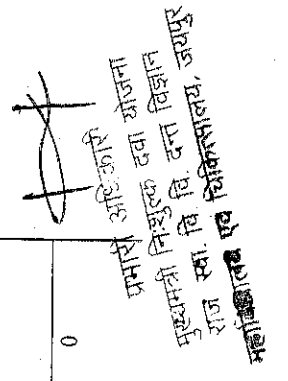 0
प्रभारी अधिकारी
मुख्यमंत्री निःशुल्क दवा योजना
राज स्वा. वि. वि. दन्त विज्ञान
महाविद्यालय एवं चिकित्सालय, जयपुर